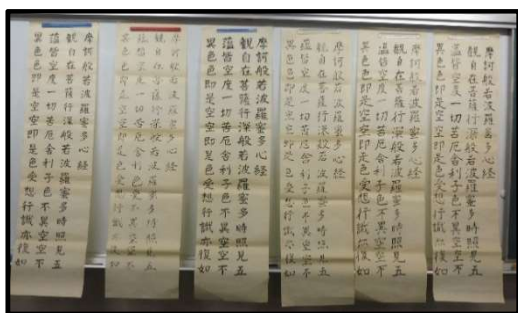 摩訶般若波羅蜜多心経
観自在菩薩行深般若波羅蜜多時照見五
蘊皆空度一切苦厄舎利子色不異空空不
異色色即是空空即是色受想行識亦復如
摩訶般若波羅蜜多心経
観自在菩薩行深般若波羅蜜多時照見五
蘊皆空度一切苦厄舎利子色不異空空不
異色色即是空空即是色受想行識亦復如
摩訶般若波羅蜜多心経
観自在菩薩行深般若波羅蜜多時照見五
蘊皆空度一切苦厄舎利子色不異空空不
異色色即是空空即是色受想行識亦復如
摩訶般若波羅蜜多心経
観自在菩薩行深般若波羅蜜多時照見五
蘊皆空度一切苦厄舎利子色不異空空不
異色色即是空空即是色受想行識亦復如
摩訶般若波羅蜜多心経
観自在菩薩行深般若波羅蜜多時照見五
蘊皆空度一切苦厄舎利子色不異空空不
異色色即是空空即是色受想行識亦復如
摩訶般若波羅蜜多心経
観自在菩薩行深般若波羅蜜多時照見五
蘊皆空度一切苦厄舎利子色不異空空不
異色色即是空空即是色受想行識亦復如